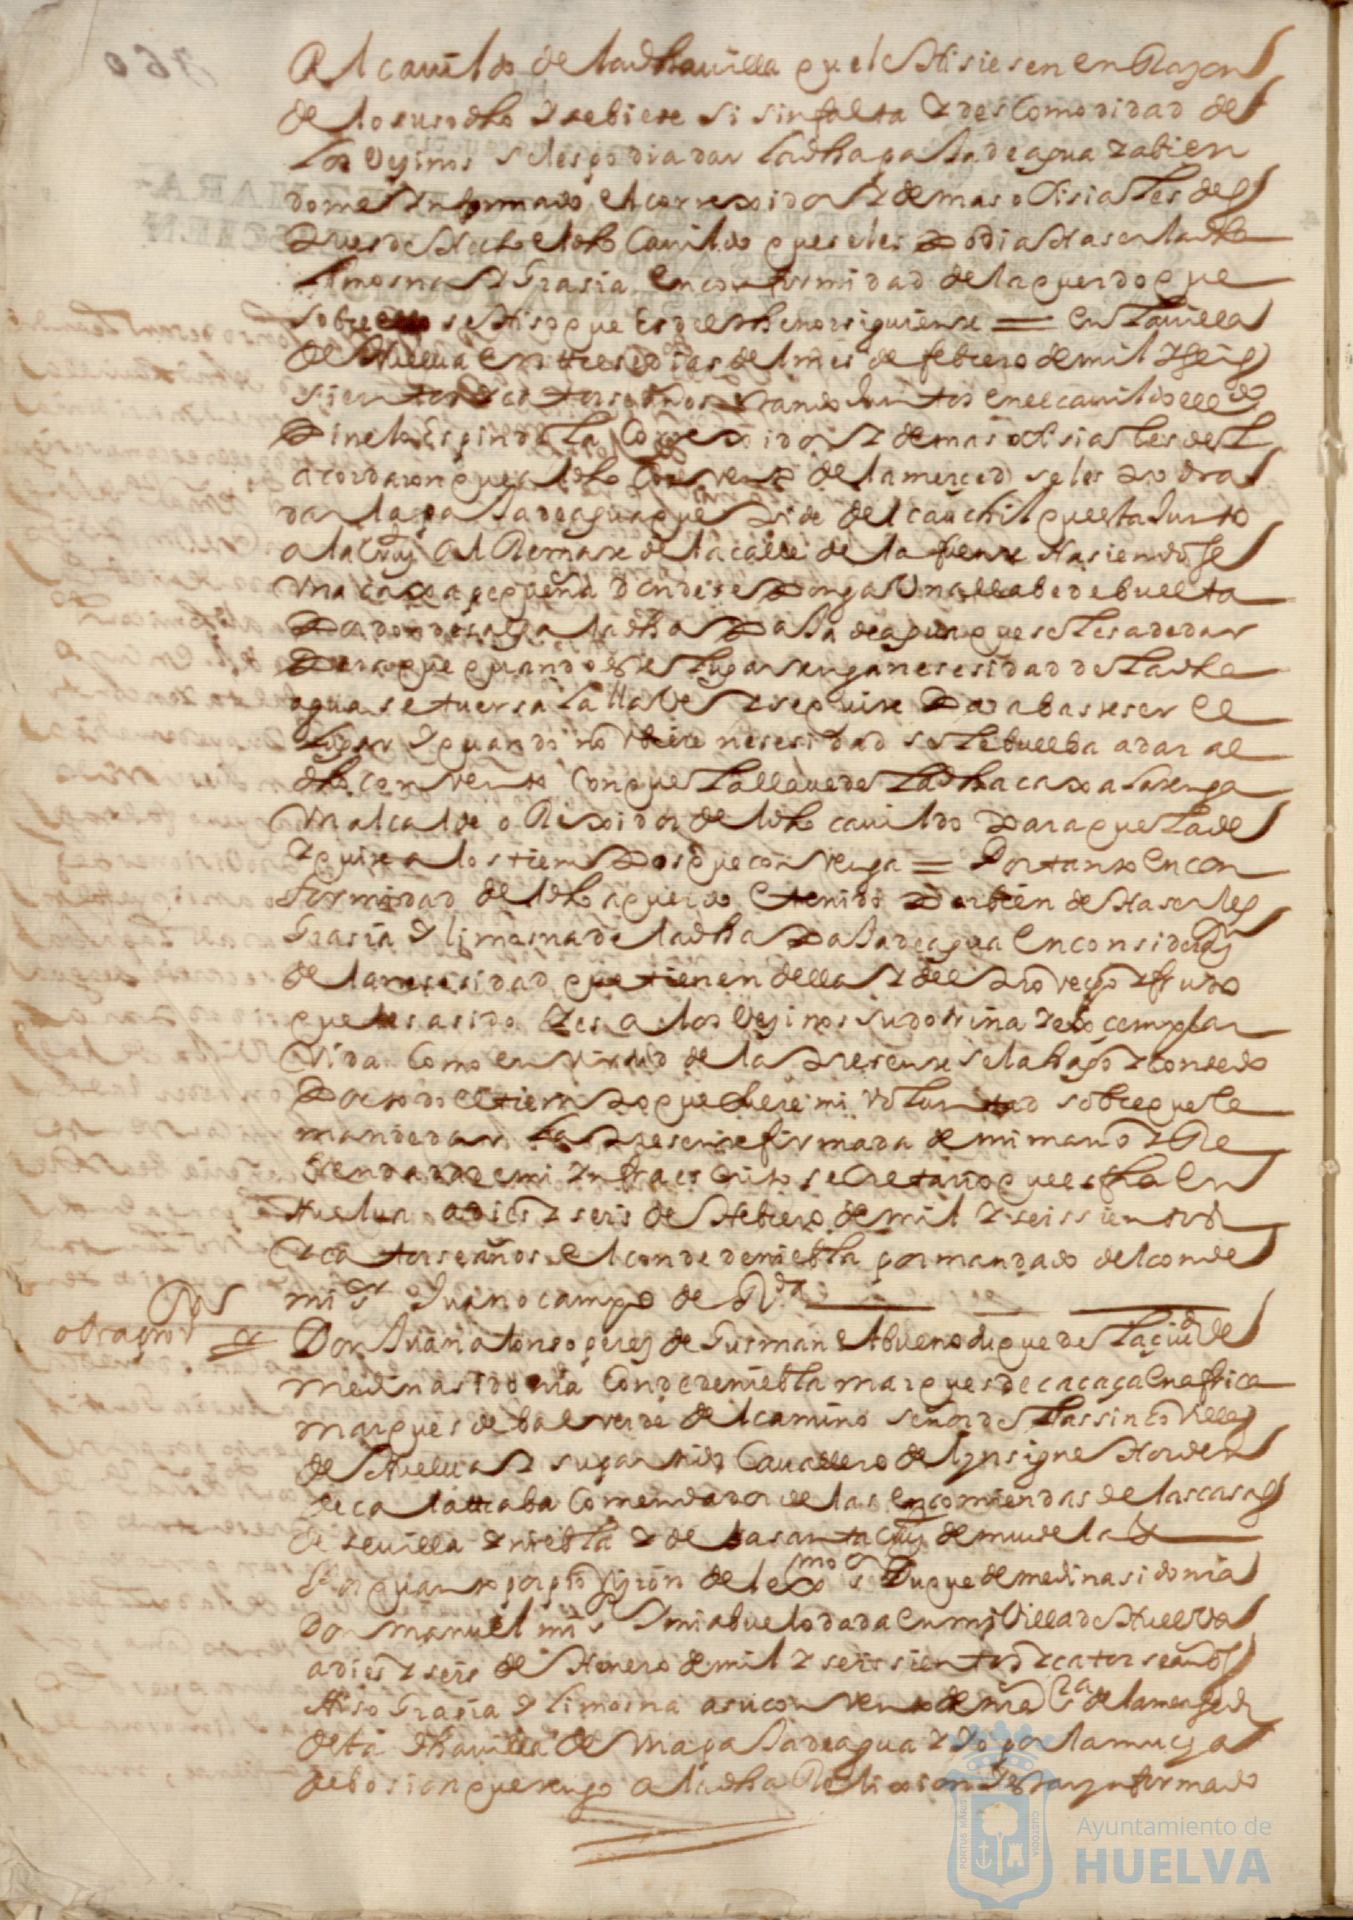 Al cauildo de la dha uilla que le hisiesen en Rason
de lo susodho y se biese si sin falta y descomodidad de
los Vesinos se les podia dar la dha paja de agua y abien
dome ynformado el correxidor y demas ofisiales del
pues de hecho el dho Cauildo que se les podia haser la dha
limosna y Grasia En conformidad del aquerdo que
sobre ello se hiso que es del thenor siguiente = En la uilla
de Huelua En trese dias del mes de febrero de mil y seis
sientos y catorse años estando Juntos en el cauildo el ldo
Pinelo espindola Correxidor y demas ofisiales del
acordaron que al dho Conuento de la merced se les podra
dar la paja de agua que pide del cauchil que esta Junto
a la Cruz Al Remate de la calle de la fuente Hasiendose
Vna caxa pequeña donde se ponga Vna llabe de buelta
Por donde salga la dha Paja de agua que se les a de dar
Pero que quando este lugar tenga nesesidad de la dha
agua se tuersa la llabe y se quite Para abasteser el
lugar y quando no vbiere nesesidad se le buelba a dar al
dho conuento Con que la llaue de la dha caxa la tenga
Vn alcalde o Rexidor del dho cauildo Para que la de
y quite a los tiempos que conuenga = Por tanto En con
formidad del dho aquerdo E tenido Por bien de Haserles
Grasia y limosna de la dha Paja de agua En considerasion
de la nesesidad que tienen della y del Prouecho y fruto
que les a sido y es a los Vesinos su dotrina y exemplar
Vida Como en Virtud de la Presente se la hago y consedo
Por todo el tiempo que fuere mi Voluntad sobre que le
mande dar la Presente firmada de mi mano y Re
frendada de mi ynfraescrito secretario que es fha En
Huelua a dies y seis de Hebrero de mil y seissientos
y catorse años El conde de niebla por mandado del conde
mi sr Juan ocampo de Rda
otra prouon Don Juan alonso peres de Gusman El bueno duque de la ciud de
medina sidonia Conde de niebla marques de cacaça En africa
marques de balverde del camino señor de las sinco Villas
de Huelua y su partido Cauallero del ynsigne Horden
de calatraba Comendador de las Encomiendas de las casas
de seuilla y niebla y de la santa Cruz de mudela &
Por quanto por prouision del exmo sr Duque de medina sidonia
Don manuel mi sr y mi abuelo dada En mi Villa de Huelua
a dies y seis de Henero de mil y seissientos y catorse años
Hiso Grasia y limosna a su conuento de nra sra de la merced
desta dha uilla de Vna paja de agua y Yo por la mucha
debosion que tengo a la dha Relixion y estar ynformado
Ayuntamiento de
HUELVA